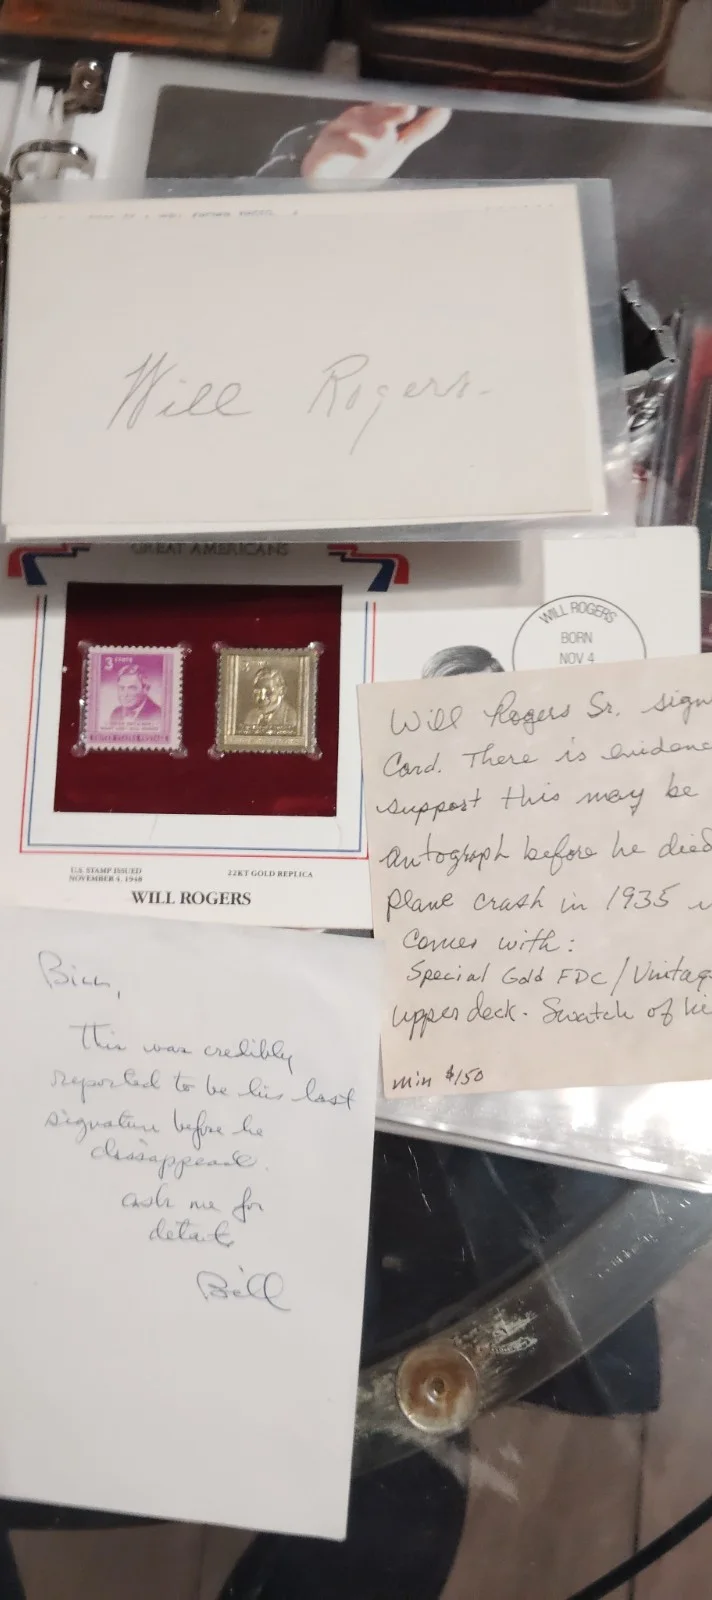 Will Rogers
GREAT AMERICANS
3 CENTS
U.S. STAMP ISSUED
NOVEMBER 4, 1948
22KT GOLD REPLICA
WILL ROGERS
WILL ROGERS
BORN
NOV 4
Will Rogers Sr. sign
Card. There is evidenc
support this may be
autograph before he died
plane crash in 1935
Comes with:
Special Gold FDC/Vintag
upper deck. Swatch of
min $150
Bill,
This was credibly
reported to be his last
signature before he
dissappeared.
ask me for
details
Bill